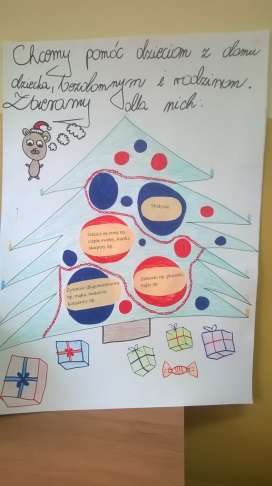 Chcemy pomóc dzieciom z domu
dziecka, bezdomnym i rodzinom.
Zbieramy dla nich:
Słodycze
Odzież na zimę np.
ciepłe swetry, kurtki,
skarpety itp.
Zabawki np. pluszaki,
bajki itp.
Żywność długoterminowa
np. mąka, makaron,
konserwy itp.